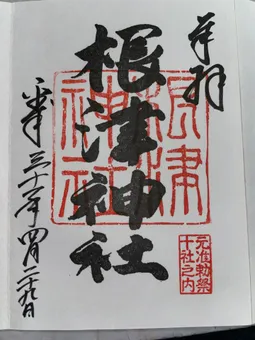 奉拝
根津神社
根津神社
元准勅祭十社之内
平成三十一年四月二十九日